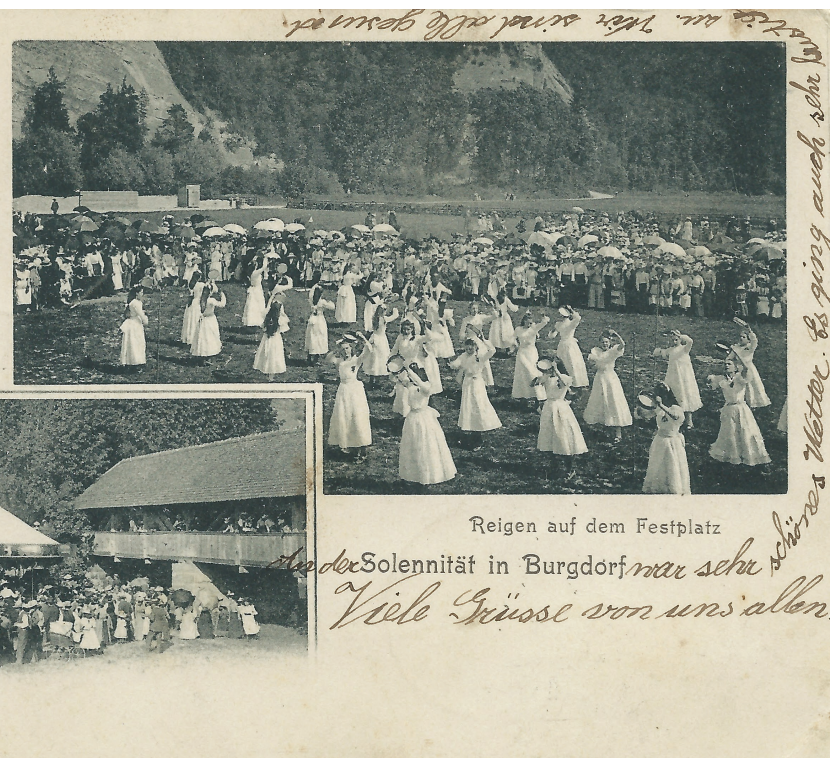 Reigen auf dem Festplatz
An der Solennität in Burgdorf war sehr
schönes Wetter. Es ging auch sehr
an. Wir sind alle gesund.
Viele Grüsse von uns allen.